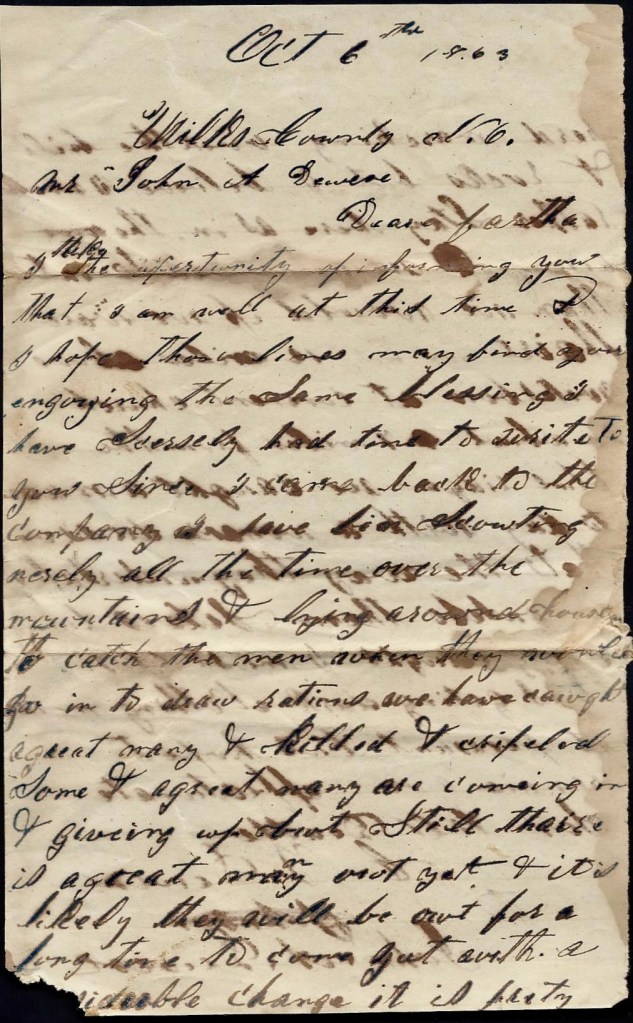 Oct 6th 1863
Wilks County N.C.
Mr John A
Dear farther
I take the opertunity of informing you
that I am well at this time &
I hope those lines may find you
engoying the Same blessing I
have Scersely had time to write to
you Since I came back to the
company I have bin Scouting
nerely all the time over the
mountains & lying around houses
to catch the men when they
go in to draw rations we have caught
a great many & killed & cripeled
Some & a great many are comeing in
& giveing up but Still thaire
is a great many out yet & it is
likely they will be out for a
long time to come yet with a
change it is prety